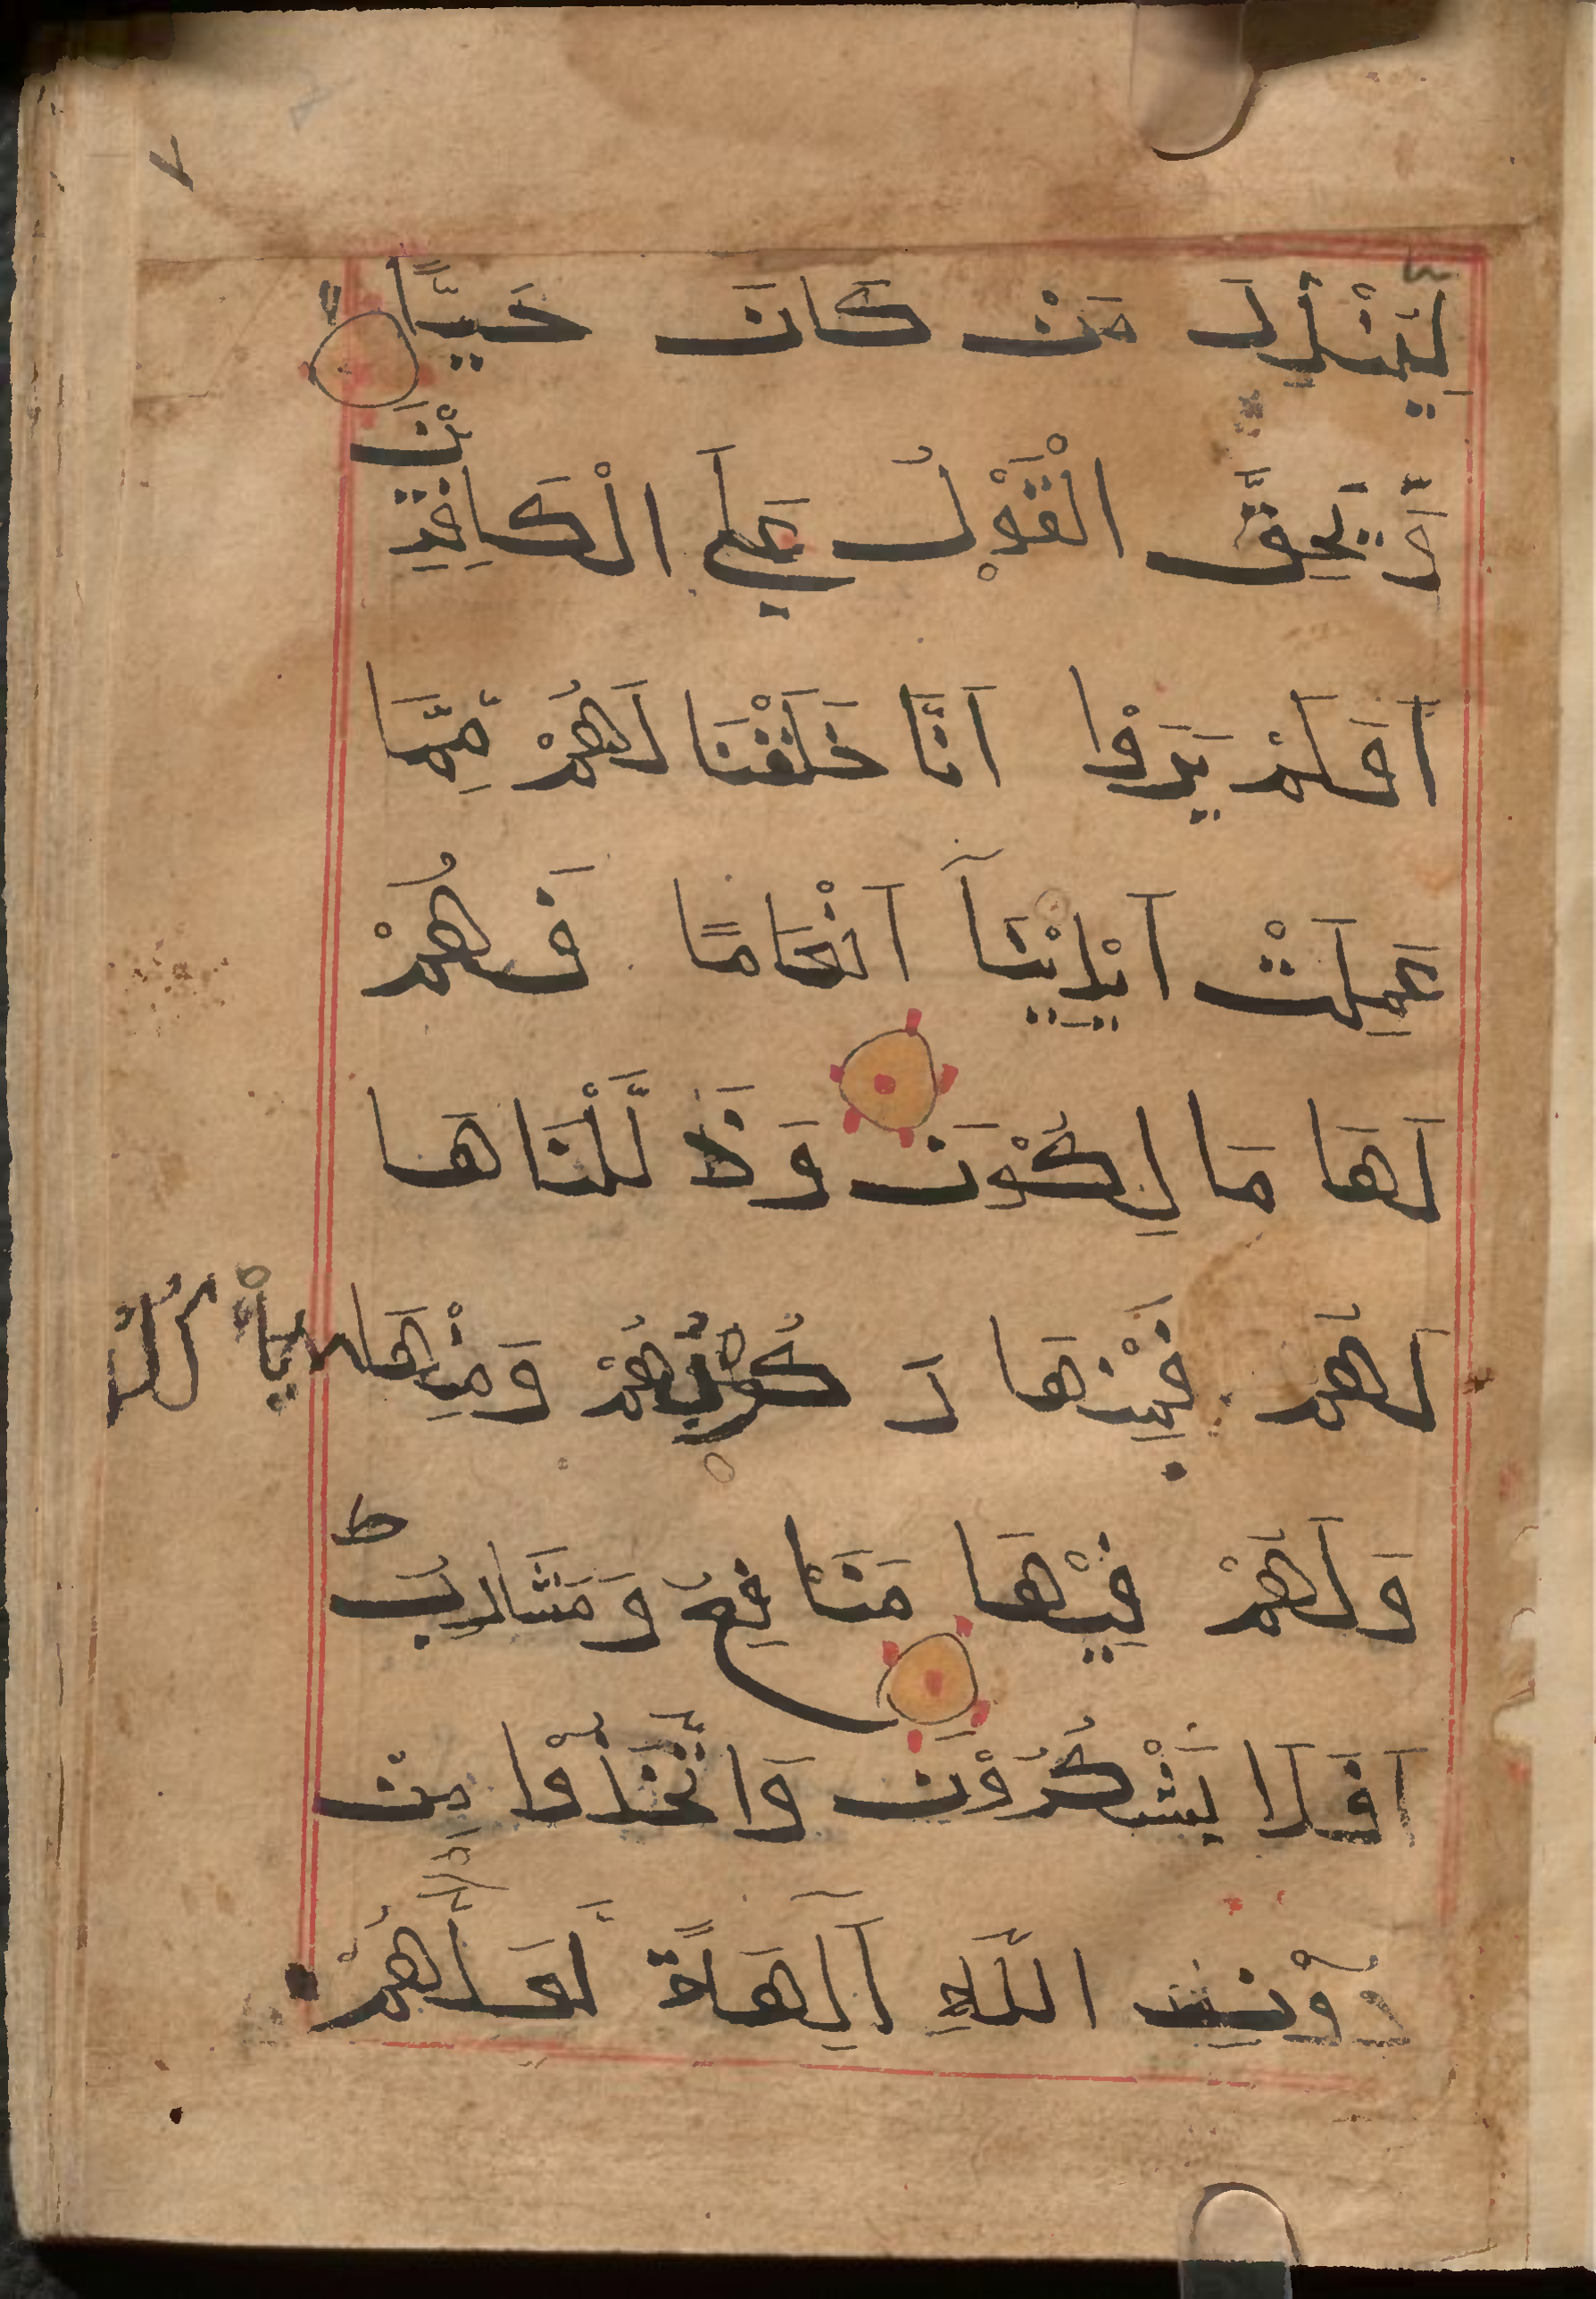 ٧
لِيُنْذِرَ مَنْ كَانَ حَيًّا
وَّيَحِقَّ الْقَوْلُ عَلَى الْكَافِرِيْنَ
اَوَلَمْ يَرَوْا اَنَّا خَلَقْنَا لَهُمْ مِّمَّا
عَمِلَتْ اَيْدِيْنَآ اَنْعَامًا فَهُمْ
لَهَا مَالِكُوْنَ وَذَلَّلْنَاهَا
لَهُمْ فَمِنْهَا رَكُوْبُهُمْ وَمِنْهَا يَأْكُلُوْنَ
وَلَهُمْ فِيْهَا مَنَافِعُ وَمَشَارِبُ ط
اَفَلَا يَشْكُرُوْنَ وَاتَّخَذُوْا مِنْ
دُوْنِ اللّٰهِ اٰلِهَةً لَّعَلَّهُمْ